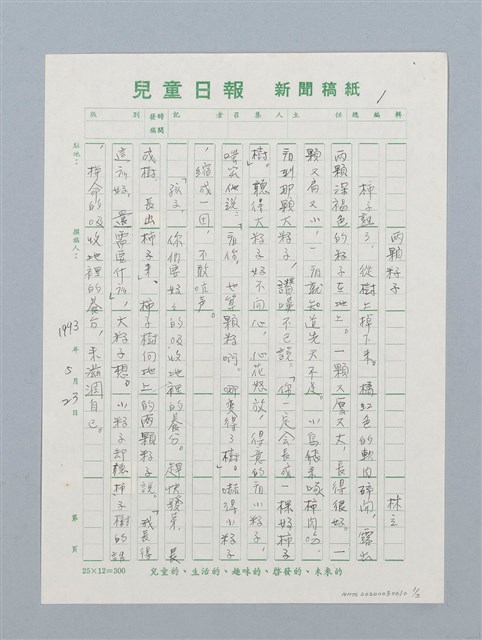 兒童日報 新聞稿紙
1
版 別 發稿時間 記者 召集人 主任 總編輯
兩顆籽子
林立
柿子熟了，從樹上掉下來。橘紅色的軟肉碎開，露出
兩顆深褐色的籽子在地上。一顆又厚又大，長得很好。一
顆又扁又小，一看就知道先天不足。小鳥飛來啄柿肉吃，
看到那顆大籽子，讚嘆不已說：「你一定會長成一棵好柿子
樹。」聽得大籽子好不開心，心花怒放，得意的看小籽子，
嘲笑他說：「看你，也算顆籽啊。哪變得了樹。」嚇得小籽子
，縮成一團，不敢吭聲。
「孩子，你們要好好的吸收地裡的養分。趕快發芽，長
成樹，長出柿子來。」柿子樹向地上的兩顆籽子說。「我長得
這麼好，還需要什麼。」大籽子想。小籽子却聽柿子樹的話
，拚命的吸收地裡的養分，來滋潤自己。
點地：
撰稿人：
1993年5月23日
第 頁
25×12=300
兒童的、生活的、趣味的、啓發的、未來的
1/2